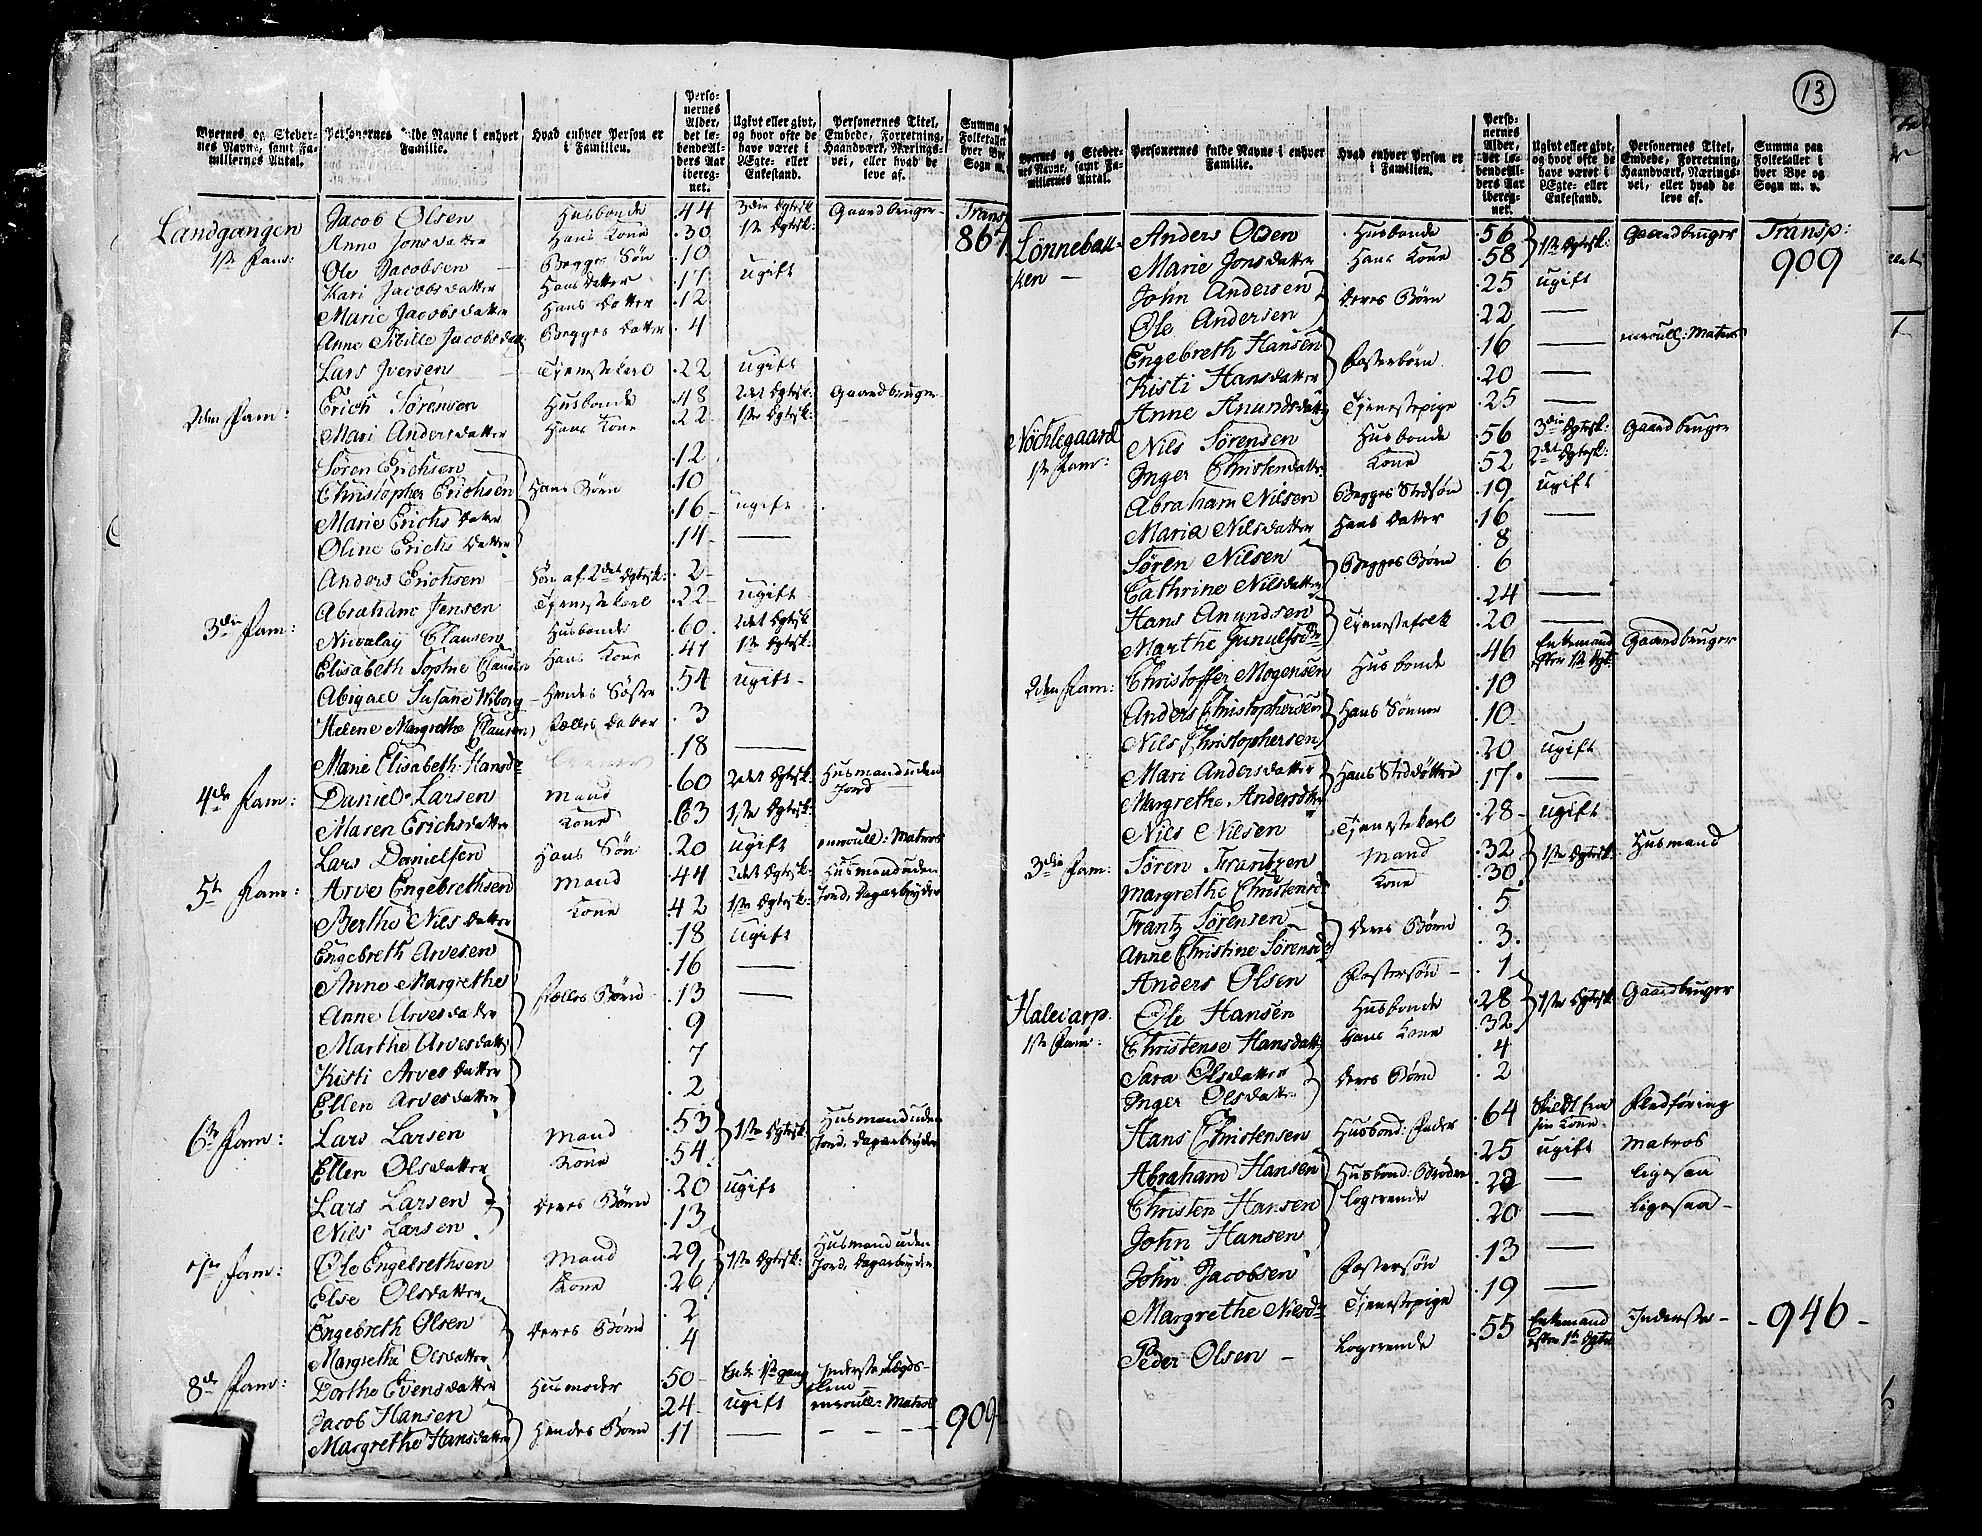 13
Byernes og Stedernes Navne, samt Familiernes Antal. | Personernes fulde Navne i enhver Familie. | Hvad enhver Person er i Familien. | Personernes Alder, det løbende Alders Aar iberegnet. | Ugivt eller givt, og hvor ofte de have været i Ægte- eller Enkestand. | Personernes Titel, Embede, Forretning, Haandværk, Næringsvei, eller hvad de leve af. | Summa Folketallet hver Bye Sogn m.
Landgangen Jacob Olsen Husbonde 44 3die Egtesk Gaardbruger Transp
1ste Fam: Anne Jonsdatter Hans Kone 30 1ste Egtesk: 867
Ole Jacobsen Begges Søn 10
Kari Jacobsdatter Hans datter 17 ugift
Marie Jacobsdatter Hans datter 12
Anne Sibille Jacobsdatt Begges datter 4
Lars Iversen Tjenestekarl 22 ugift
2den Fam: Erich Sørensen Husbonde 48 2det Egtesk: Gaardbruger
Mari Andersdatter Hans Kone 22 1ste Egtesk:
Søren Erichsen 12
Christopher Erichsen Hans Børn 10
Marie Erichsdatter 16 ugift
Oline Erichsdatter 14 —
Anders Erichsen Søn af 2det Egtesk: 2
Abraham Jensen Tjenestekarl 22 ugift
3die Fam: Nicolay Clausen Husbonde 60 2det Egtesk
Elisabeth Sophie Clausen Hans Kone 41 1ste Egtesk:
Abigael Susane Wiborg Hendes Søster 54 ugift
Helene Margrethe Clausen Fælles datter 3
Marie Elisabeth Hansd: 18 —
4de Fam: Daniel Larsen Mand 60 2det Egtesk: Husmand uden Jord
Maren Erichsdatter Kone 63 1ste Egtesk:
Lars Danielsen Hans Søn 20 ugift enroull: Matros
5te Fam: Arve Engebrethsen Mand 44 2det Egtesk: Husmand uden
Berthe Nilsdatter Kone 42 1ste Egtesk: Jord, Dagarbeyder
Engebreth Arvesen 18 ugift
Anne Margrethe 16 —
Anne Arvesdatter Fælles Børn 13 —
Marthe Arvesdatter 9
Kisti Arvesdatter 7
Ellen Arvesdatter 2
6te Fam: Lars Larsen Mand 53 1ste Egtesk: Husmand uden
Ellen Olsdatter Kone 54 Jord, Dagarbeyder
Lars Larsen Deres Børn 20 ugift
Nils Larsen 13
7de Fam: Ole Engebrethsen Mand 29 1ste Egtesk: Husmand uden
Else Olsdatter Kone 26 Jord, Dagarbeyder
Engebreth Olsen Deres Børn 2
Margrethe Olsdatter 4
8de Fam: Dorthe Evensdatter Husmoder 50 Enke 1ste gang Inderste Lægds-
Jacob Hansen Hendes Børn 24 ugift enroull: Matros
Margrethe Hansdatter 11 — 909
Byernes og Stedernes Navne, samt Familiernes Antal. | Personernes fulde Navne i enhver Familie. | Hvad enhver Person er i Familien. | Personernes Alder, det løbende Alders Aar iberegnet. | Ugivt eller givt, og hvor ofte de have været i Ægte- eller Enkestand. | Personernes Titel, Embede, Forretning, Haandværk, Næringsvei, eller hvad de leve af. | Summa paa Folketallet i hver Bye og Sogn m. v.
Lønnebak- Anders Olsen Husbonde 56 1ste Egtesk: Gaardbruger Transp:
ken Marie Jonsdatter Hans Kone 58 909
John Andersen Deres Børn 25 ugift
Ole Andersen 22 —
Engebreth Hansen Fosterbørn 16 — enroull: Matros
Kisti Hansdatter 20 —
Anne Anundsdatter Tjenestepige 25 —
Nöchlegaard Nils Sørensen Husbonde 56 3die Egtesk: Gaardbruger
1ste Fam: Inger Christensdatter Kone 52 2det Egtesk:
Abraham Nilsen Begges Stedsøn 19 ugift
Maria Nilsdatter Hans datter 16 —
Søren Nilsen Begges Børn 8
Cathrine Nilsdatter 6
Hans Anundsen Tjenestefolk 24 —
Marthe Gunulfsd: 20 —
2den Fam: Christoffer Mogensen Husbonde 46 Enkemand efter 1ste Egt: Gaardbruger
Anders Christophersen Hans Sønner 10
Nils Christophersen 10
Mari Andersdatter Hans Steddøttre 20 ugift
Margrethe Andersdatter 17 —
Nils Nilsen Tjenestekarl 28 ugift
3die Fam: Søren Frantzen Mand 32 1ste Egtesk: Husmand
Margrethe Christensd: Kone 30
Frantz Sørensen Deres Børn 5
Anne Christine Sørensd: 3
Anders Olsen Fostersøn 1
Haleiarp Ole Hansen Husbonde 28 1ste Egtesk: Gaardbruger
1ste Fam: Christense Hansdatt: Hans Kone 32
Sara Olsdatter Deres Børn 4
Inger Olsdatter 2
Hans Christensen Husbond: Fader 64 Skildt fra sin Kone Fledføring
Abraham Hansen Husbond: Brødre 25 ugift Matros
Christen Hansen logerende 22 — ligesaa
John Hansen 20 — ligesaa
John Jacobsen Fostersøn 13 —
Margrethe Nilsd: Tjenestepige 19 —
Peder Olsen Logerende 55 Enkemand efter 1ste Egtesk Inderste 946